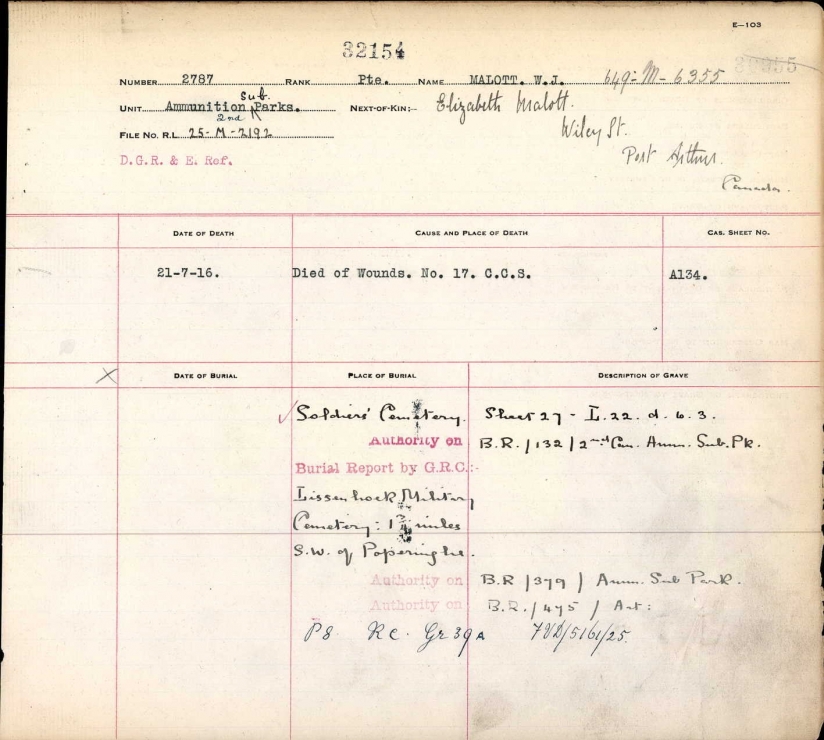 E—103
32154
NUMBER 2787 RANK Pte. NAME MALOTT. W.J. 649-M-6355
UNIT Ammunition Sub Parks. NEXT-OF-KIN:— Elizabeth Malott.
2nd
Wiley St.
FILE NO. R.L. 25-M-2192
Port Arthur.
D.G.R. & E. Ref.
Canada.
DATE OF DEATH CAUSE AND PLACE OF DEATH CAS. SHEET NO.
21-7-16. Died of Wounds. No. 17. C.C.S. A134.
DATE OF BURIAL PLACE OF BURIAL DESCRIPTION OF GRAVE
Soldiers' Cemetery. Sheet 27 - L. 22. d. 6. 3.
Authority on B.R./132/2nd Can. Amm. Sub. Pk.
Burial Report by G.R.C.:-
Lissenhoek Military
Cemetery: 1 miles
S.W. of Poperinghe.
Authority on B.R/379/ Amm. Sub Park.
Authority on B.R./475/ Art:
P8 RC. Gr 39A 7VD/5161/25.